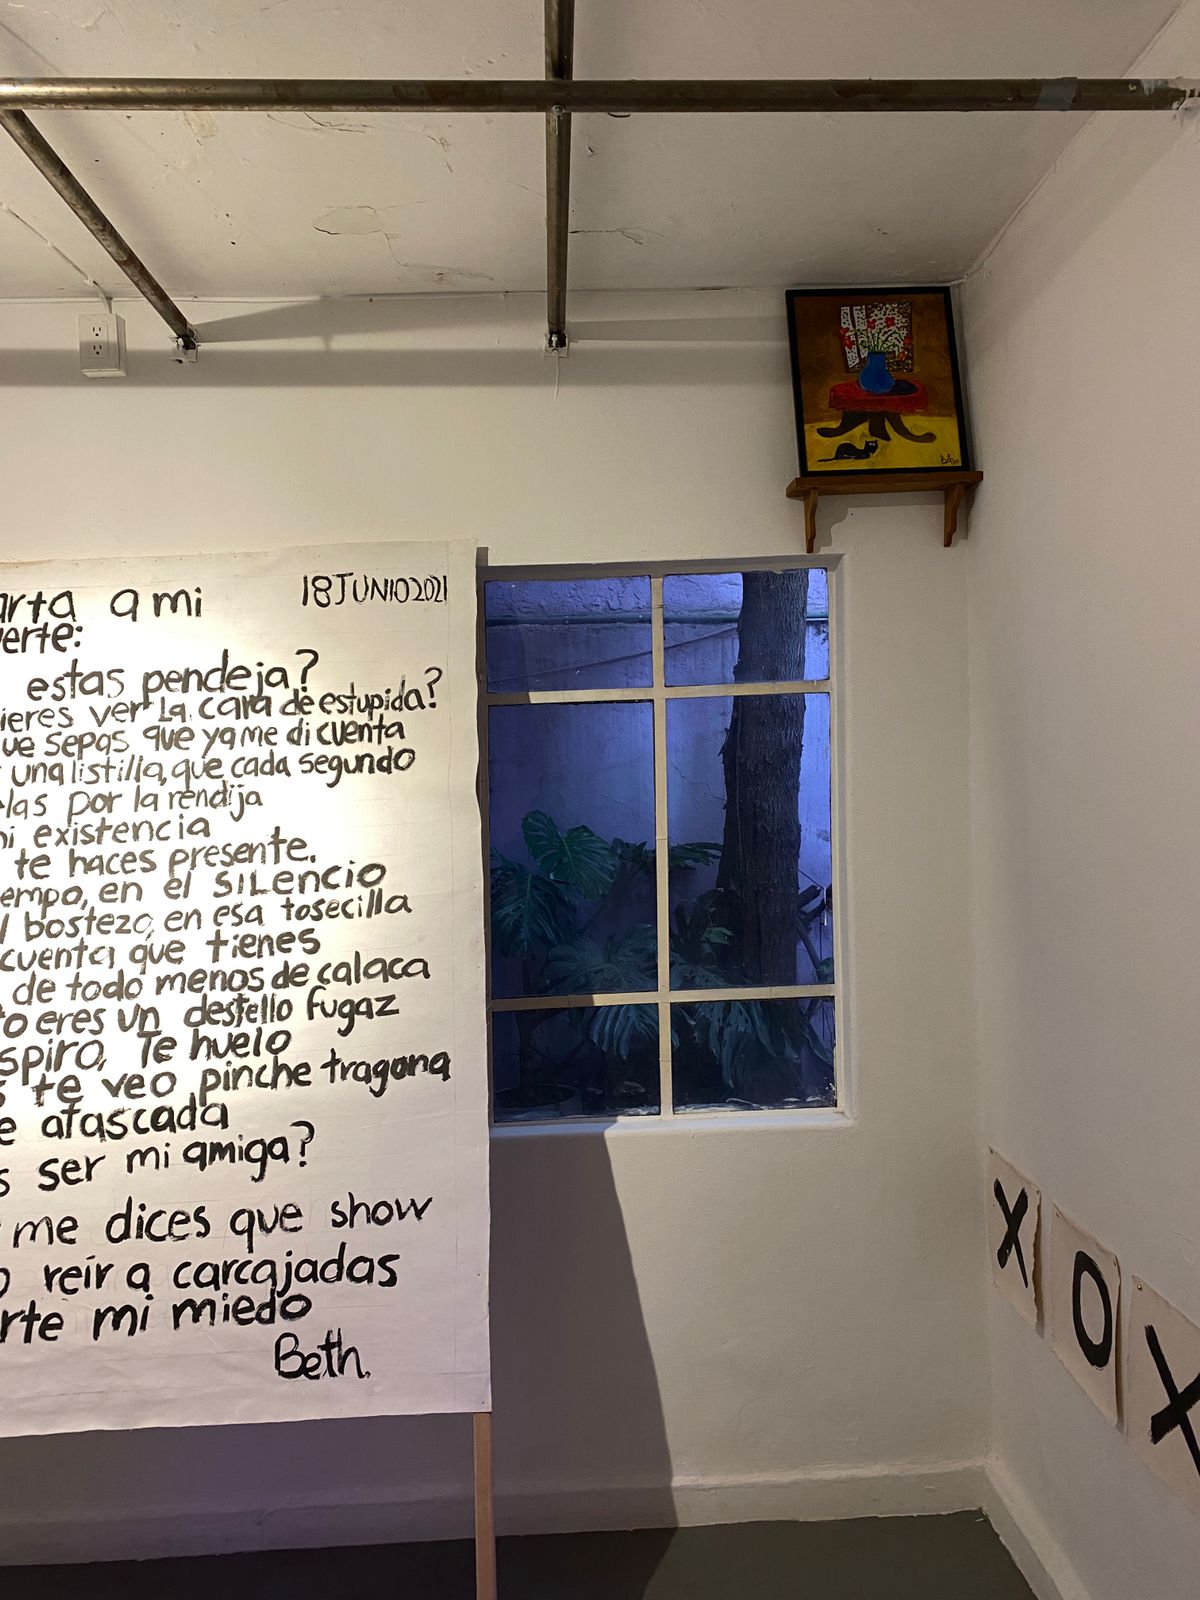 18 JUNIO 2021
arta a mi
erte:
estas pendeja?
ieres ver la cara de estupida?
ue sepas que ya me di cuenta
una listilla, que cada segundo
elas por la rendija
mi existencia
te haces presente.
empo, en el SILENCIO
l bostezo, en esa tosecilla
cuenta que tienes
de todo menos de calaca
o eres un destello fugaz
spiro, Te huelo
s te veo pinche tragona
e atascada
s ser mi amiga?
me dices que show
o reír a carcajadas
rte mi miedo
Beth.
X O X